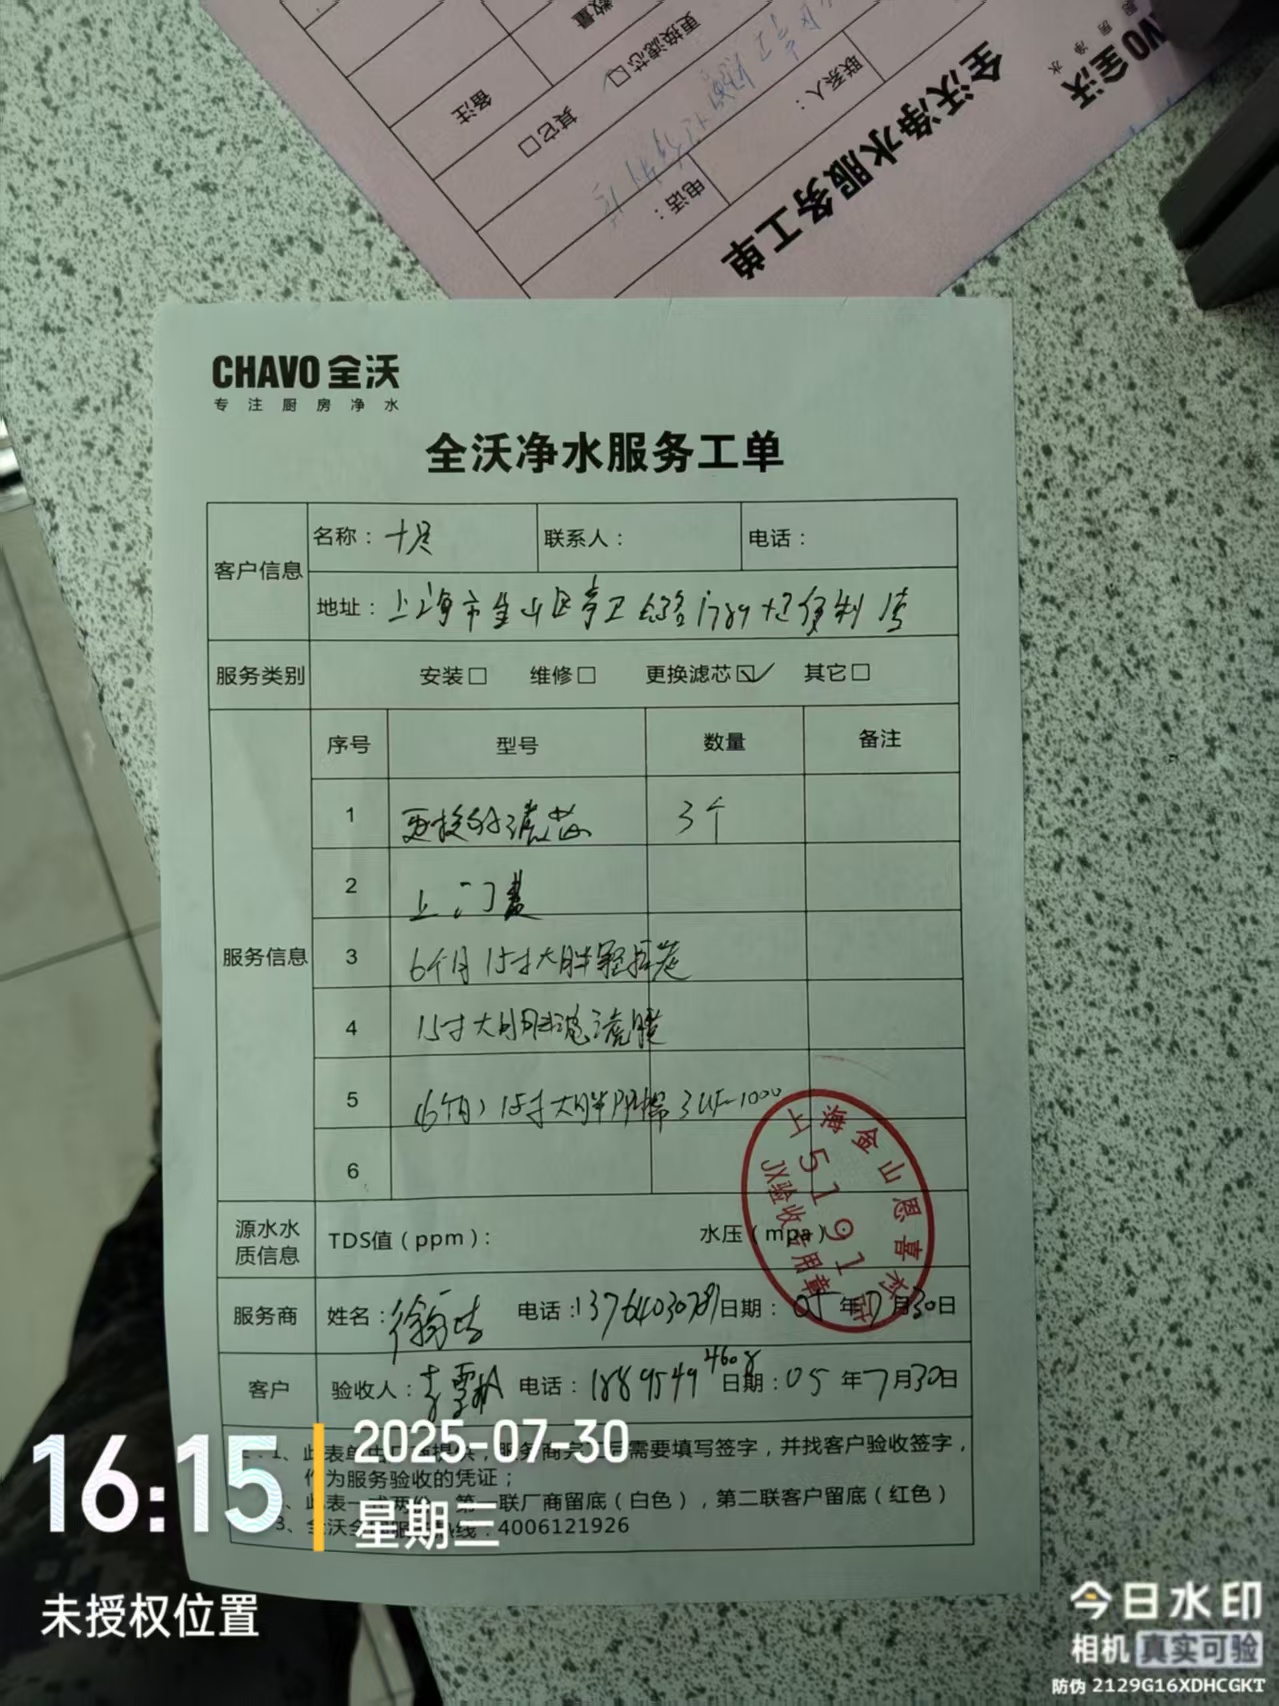 CHAVO 全沃
专注厨房净水
全沃净水服务工单
备注
数量
其它□
更换滤芯□
电话：
联系人：
CHAVO 全沃
专注厨房净水
全沃净水服务工单
客户信息 名称： 联系人： 电话：
地址：上海市金山区 卫 路1789 便利店
服务类别 安装□ 维修□ 更换滤芯☑ 其它□
服务信息 序号 型号 数量 备注
1 更换 滤芯 3个
2 上门
3 6个月 15寸大胖
4 15寸大胖 滤
5 (6个月) 15寸大胖 3 1000
6
源水水质信息 TDS值（ppm）： 水压（mpa）：
服务商 姓名：徐 电话： 日期： 05 年7月30日
客户 验收人： 雪 电话：1889549 4608 日期：05 年7月30日
1、此表单由厂商提供，服务商 需要填写签字，并找客户验收签字，
作为服务验收的凭证；
此表一式两份，第一联厂商留底（白色），第二联客户留底（红色）
3、全沃全国服务热线：4006121926
上海金山恩喜
5191
JX验收专用章
16:15
2025-07-30
星期三
未授权位置
今日水印
相机 真实可验
防伪 2129G16XDHCGKT